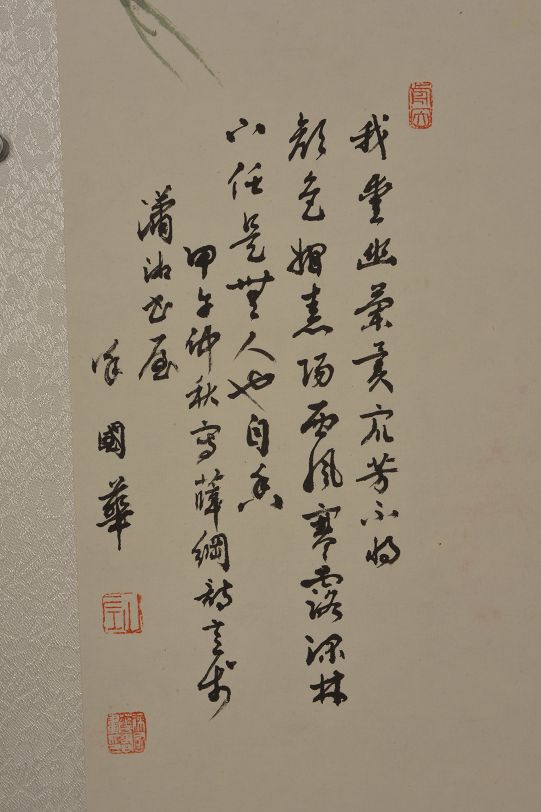 我愛幽蘭異眾芳不將
顏色媚春陽西風寒露深林
下任是無人也自香
甲午仲秋寫薛綱詩意於
瀟湘書屋
國華